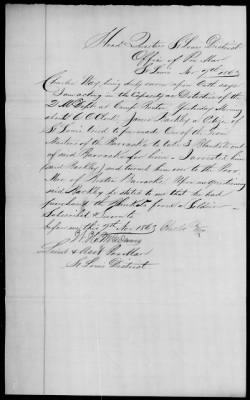 Head Quarters St Louis District
Office of Pro Mar
St Louis Nov 9th 1863
Charles Hoy being duly sworn upon Oath says
I am acting in the Capacity as Detective of the
Q M Dept at Camp Yesterday Morning
about 6 O'Clock James Barkley a Citizen of
St Louis tried to persuade one of the Team
Masters of the Barracks to take 3 Blankets out
of said Barracks for him - I arrested him
said Barkley and turned him over to the Pro
Mar of Benton Barracks. Upon questioning
said Barkley he stated to me that he had
purchased the Blankets from a Soldier
Subscribed & sworn to
before me this 9th Nov 1863 Charles Hoy
Lieut & Asst Pro Mar
St Louis District